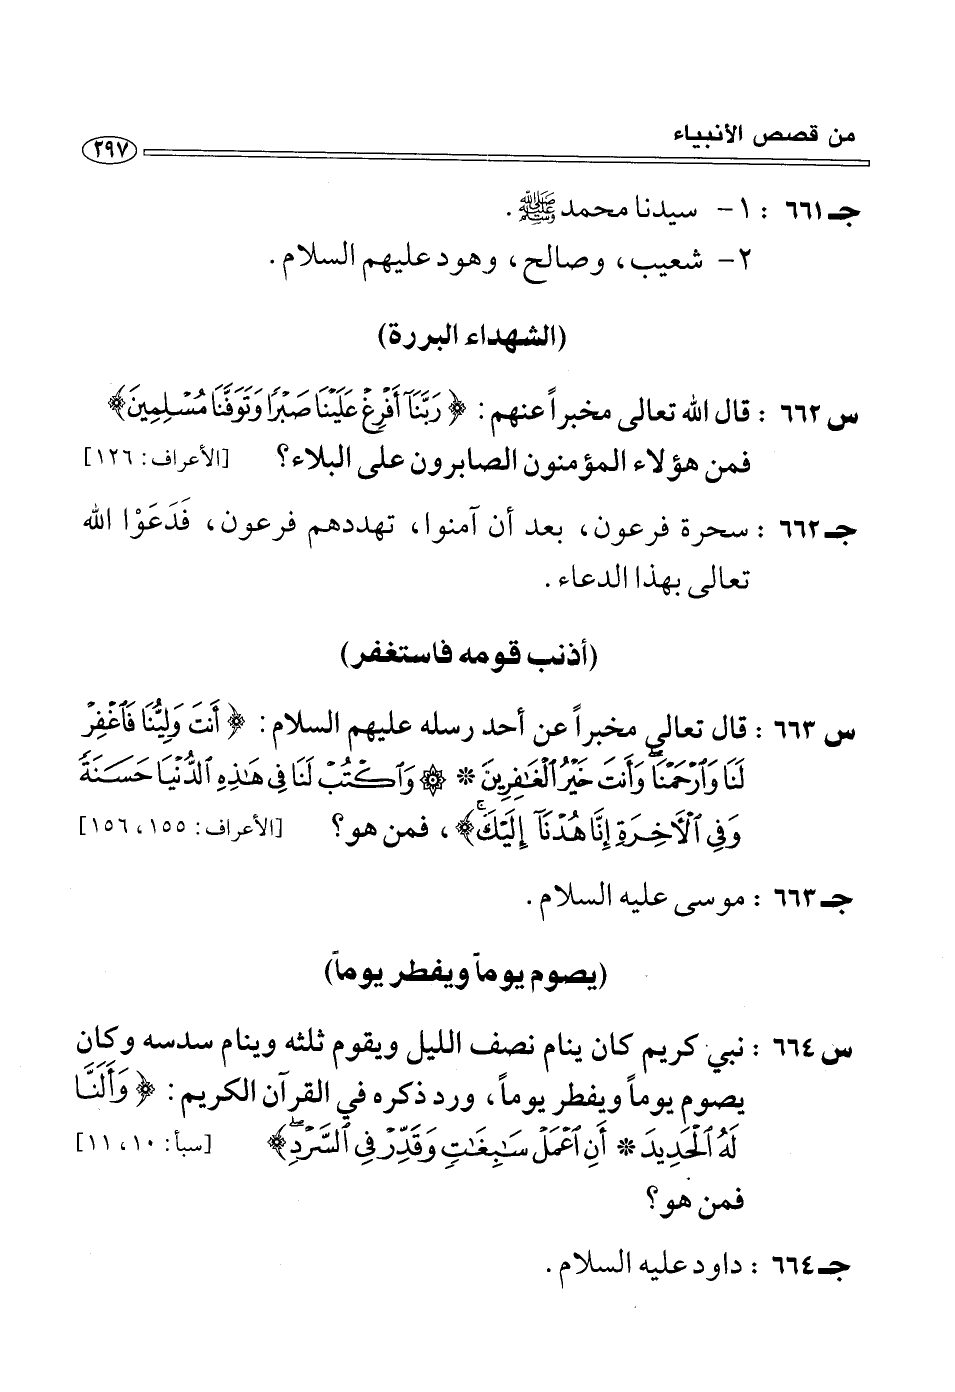 من قصص الأنبياء
٢٩٧
جـ ٦٦١ : ١- سيدنا محمد ﷺ .
٢- شعيب، وصالح، وهود عليهم السلام .
(الشهداء البررة)
س ٦٦٢ : قال الله تعالى مخبراً عنهم : ﴿ رَبَّنَآ أَفْرِغْ عَلَيْنَا صَبْرًا وَتَوَفَّنَا مُسْلِمِينَ ﴾
فمن هؤلاء المؤمنون الصابرون على البلاء؟ [الأعراف: ١٢٦]
جـ ٦٦٢ : سحرة فرعون، بعد أن آمنوا، تهددهم فرعون، فَدَعَوْا الله
تعالى بهذا الدعاء .
(أذنب قومه فاستغفر)
س ٦٦٣ : قال تعالى مخبراً عن أحد رسله عليهم السلام : ﴿ أَنتَ وَلِيُّنَا فَٱغْفِرْ
لَنَا وَٱرْحَمْنَاۖ وَأَنتَ خَيْرُ ٱلْغَٰفِرِينَ * ۞ وَٱكْتُبْ لَنَا فِى هَٰذِهِ ٱلدُّنْيَا حَسَنَةً
وَفِى ٱلْأَخِرَةِ إِنَّا هُدْنَآ إِلَيْكَۚ ﴾، فمن هو؟ [الأعراف: ١٥٥، ١٥٦]
جـ ٦٦٣ : موسى عليه السلام .
(يصوم يوماً ويفطر يوماً)
س ٦٦٤ : نبي كريم كان ينام نصف الليل ويقوم ثلثه وينام سدسه وكان
يصوم يوماً ويفطر يوماً، ورد ذكره في القرآن الكريم : ﴿ وَأَلَنَّا
لَهُ ٱلْحَدِيدَ * أَنِ ٱعْمَلْ سَٰبِغَٰتٍ وَقَدِّرْ فِى ٱلسَّرْدِۖ ﴾ [سبأ: ١٠، ١١]
فمن هو؟
جـ ٦٦٤ : داود عليه السلام .